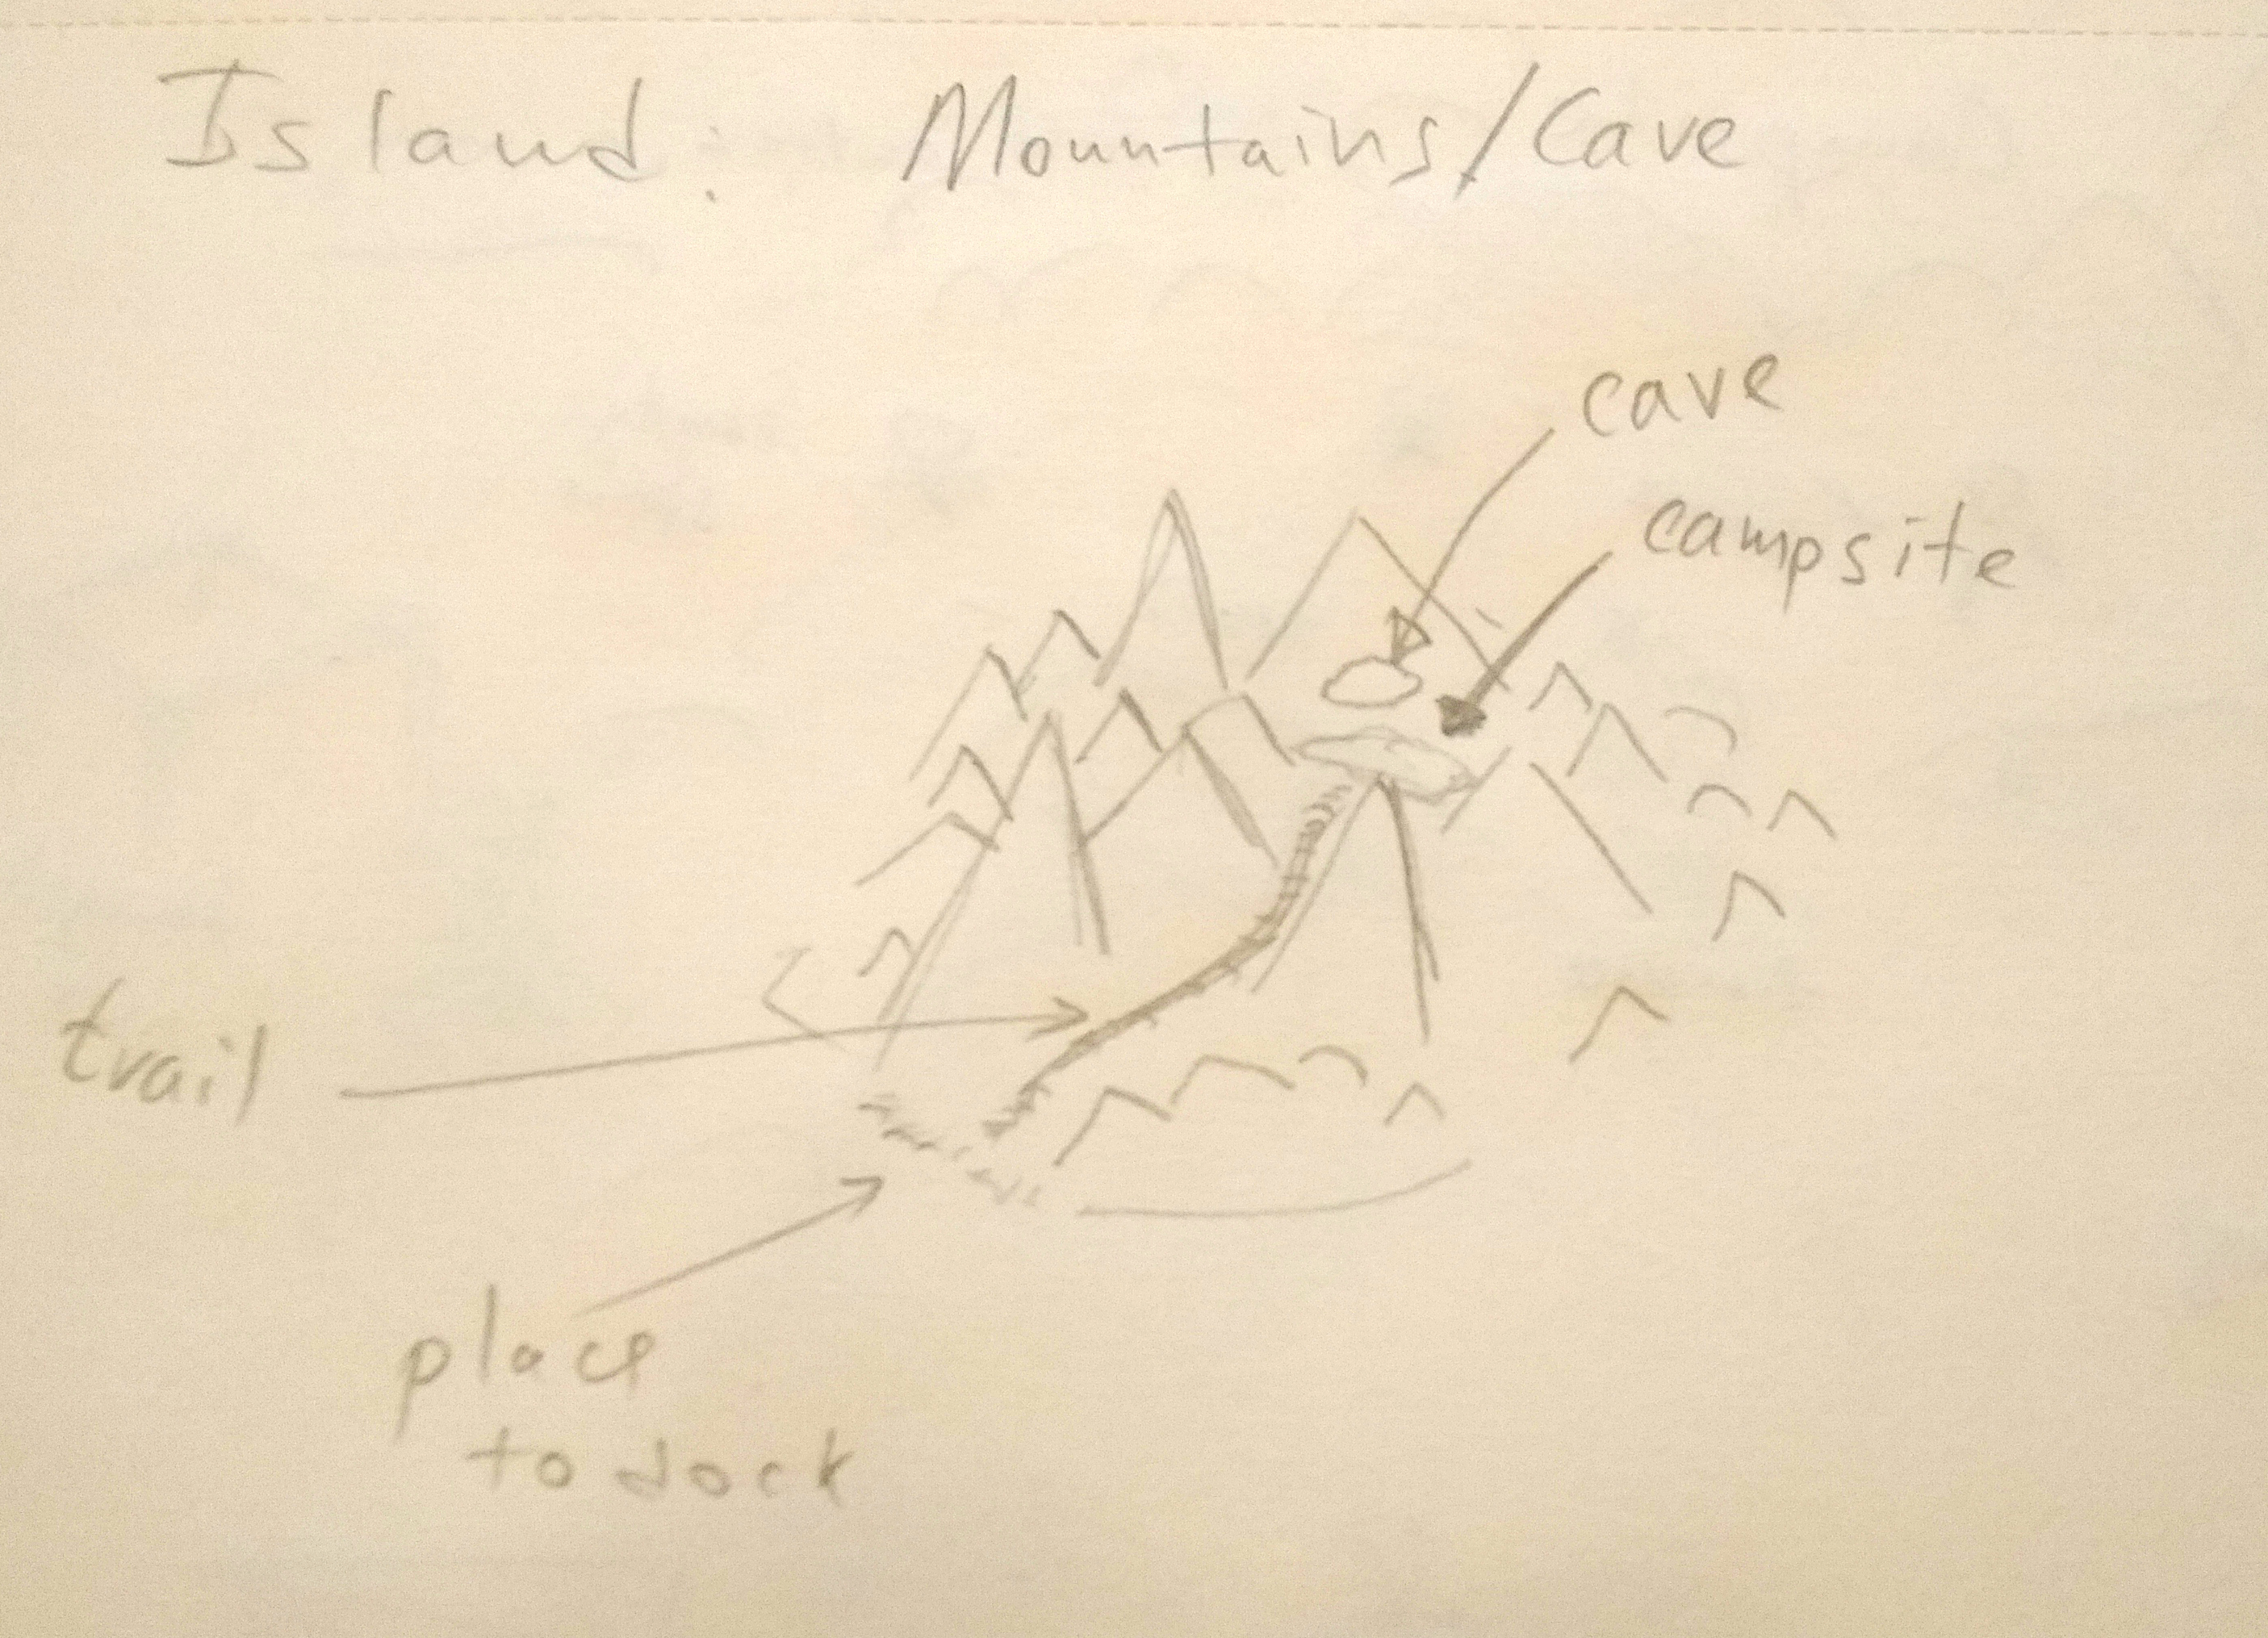 Island: Mountains/Cave
cave
campsite
trail
place
to dock